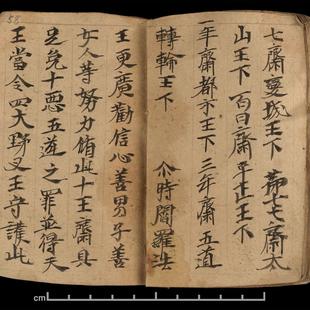 七齋變城王下 第七七齋太
山王下 百日齋平正王下
一年齋都市王下 三年齋五道
轉輪王下 尒時閻羅法
王更廣勸信心善男子善
女人等努力脩此十王齋具
足免十惡五道之罪並得天
王當令四大野叉王守護此
58
cm